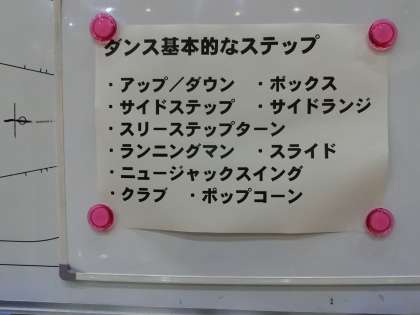 ダンス基本的なステップ
・アップ／ダウン ・ボックス
・サイドステップ ・サイドランジ
・スリーステップターン
・ランニングマン ・スライド
・ニュージャックスイング
・クラブ ・ポップコーン